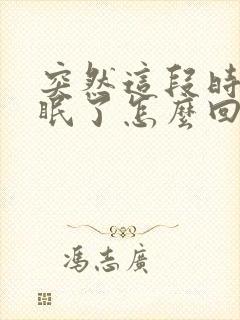 突然這段時
眠了怎麼回
馮志廣